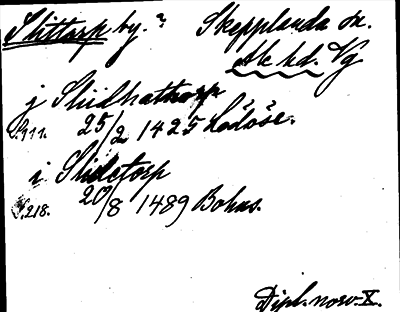 Slittorp by.? Skepplanda sn.
Ale hd. Vg
j Sliidhathorp
s.111. 25/2 1425 Lödöse.
i Slidetorp
s.218. 20/8 1489 Bohus.
Dipl. norv. X.